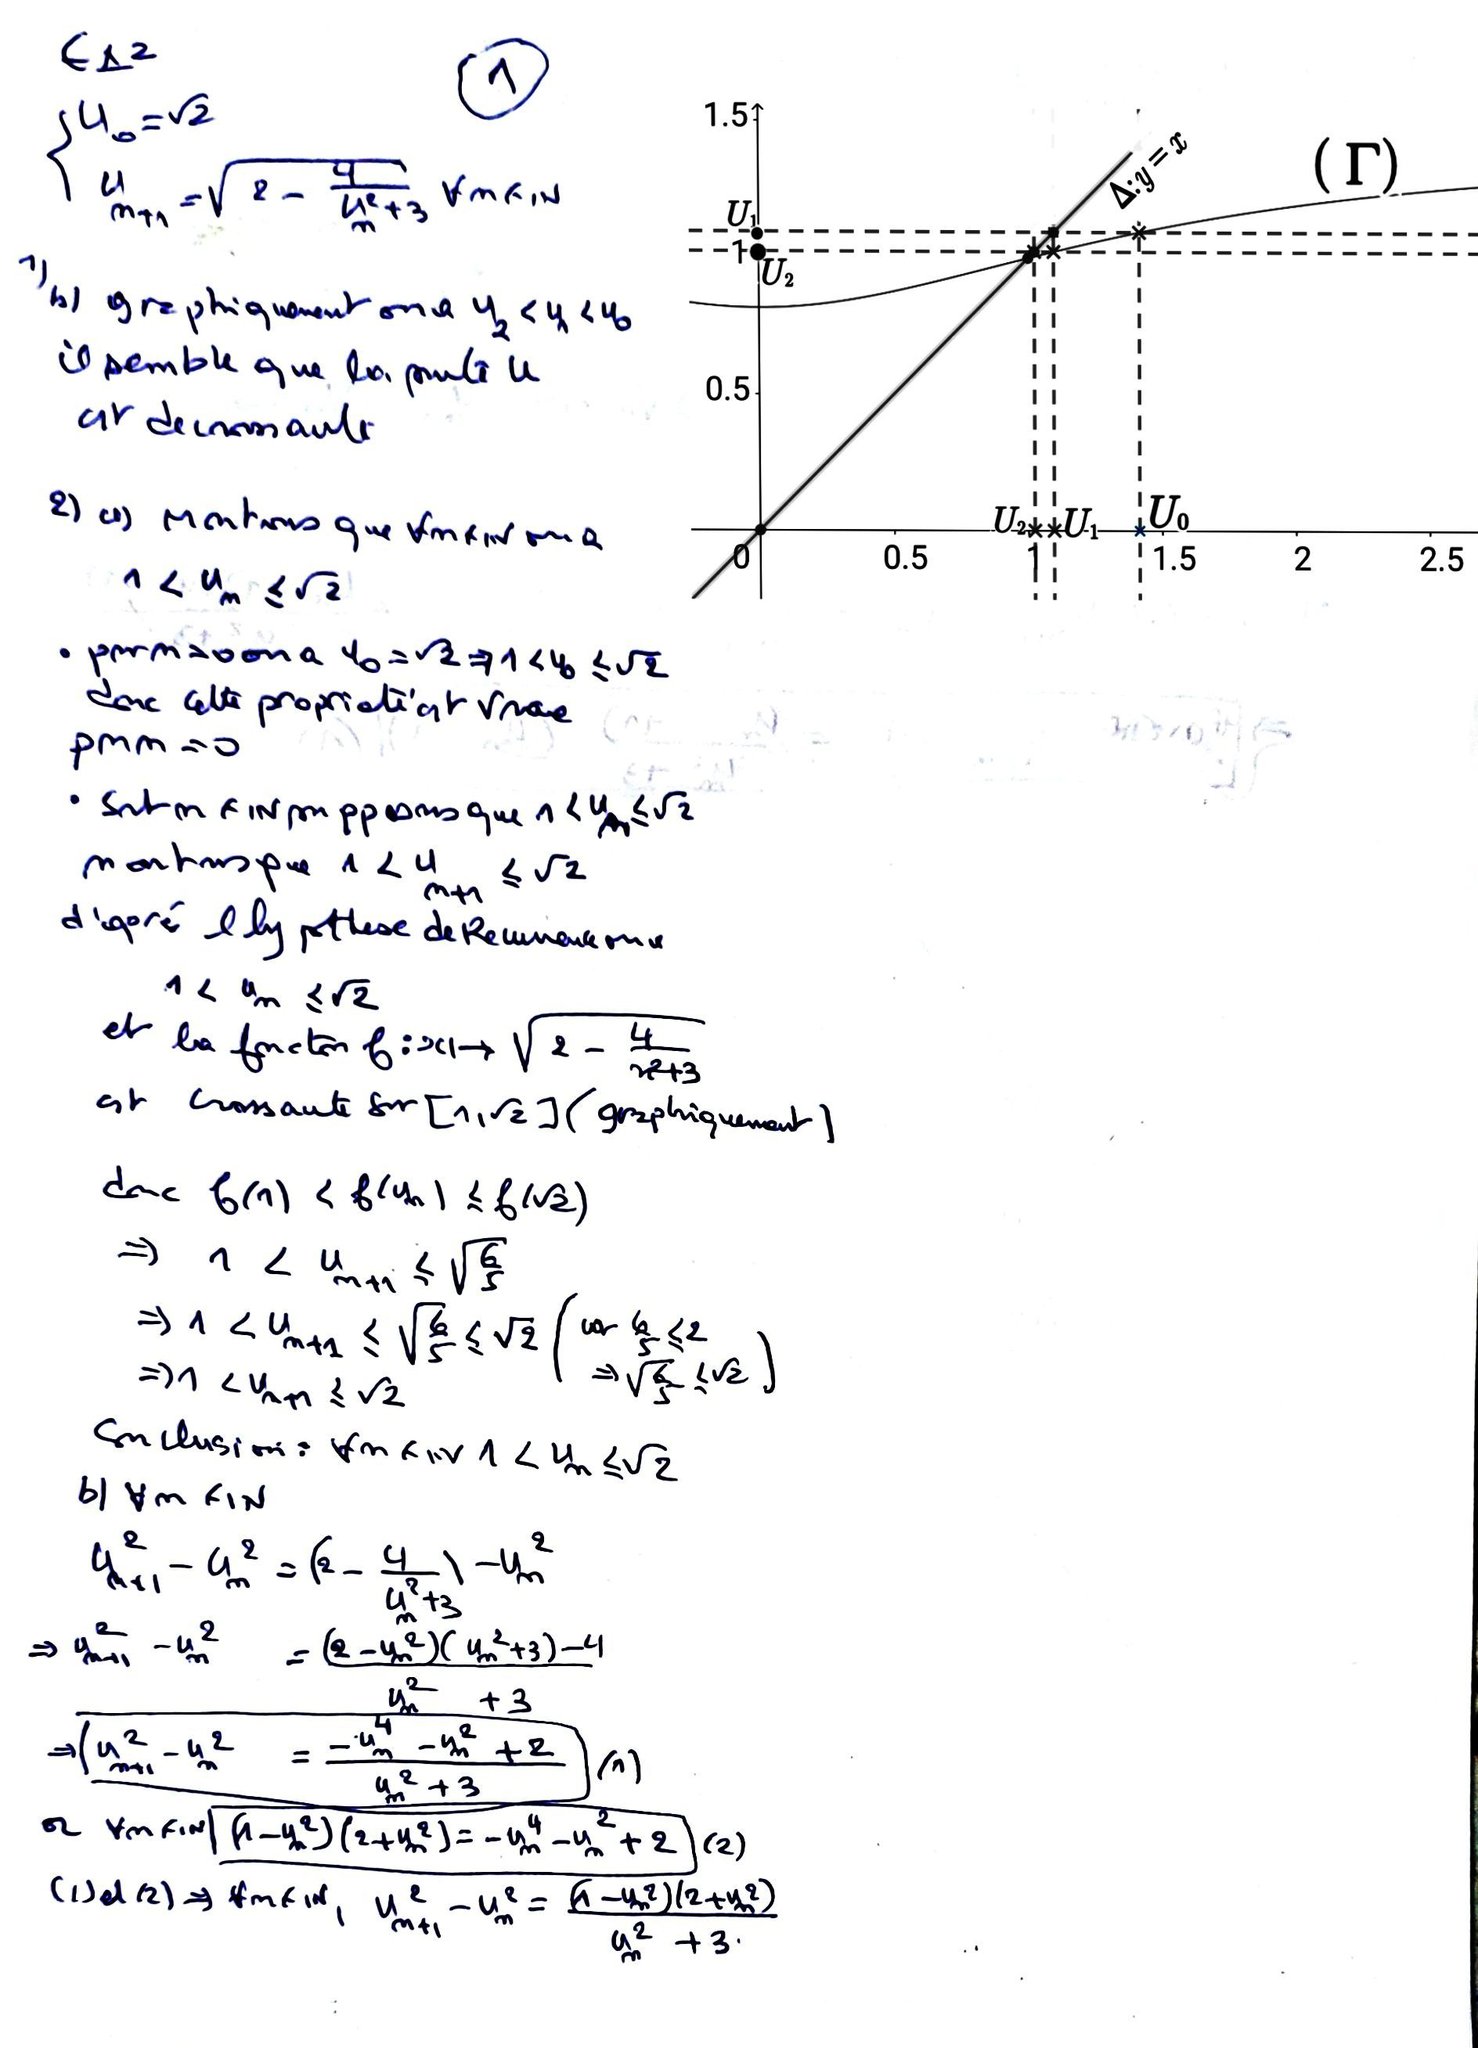 Ex2
1
{ U₀ = √2
U_{n+1} = √(2 - 4/(U_n²+3)) ∀n∈IN
1)
b) graphiquement on a U₂ < U₁ < U₀
il semble que la suite U
est decroissante
1.5
U₁
1
U₂
0.5
Δ: y = x
(Γ)
U₂ U₁ U₀
0 0.5 1 1.5 2 2.5
2) a) Montrons que ∀n∈IN on a
1 < U_n ≤ √2
• pour n=0 on a U₀ = √2 ⇒ 1 < U₀ ≤ √2
donc cette propriété est vraie
pour n = 0
• Soit n∈IN supposons que 1 < U_n ≤ √2
montrons que 1 < U_{n+1} ≤ √2
d'après l'hypothese de Recurrence on a
1 < U_n ≤ √2
et la fonction f: x ↦ √(2 - 4/(x²+3))
est croissante sur [1,√2] (graphiquement)
donc f(1) < f(U_n) ≤ f(√2)
⇒ 1 < U_{n+1} ≤ √(6/5)
⇒ 1 < U_{n+1} ≤ √(6/5) ≤ √2 (car 6/5 ≤ 2 ⇒ √(6/5) ≤ √2)
⇒ 1 < U_{n+1} ≤ √2
Conclusion: ∀n∈IN 1 < U_n ≤ √2
b) ∀n∈IN
U_{n+1}² - U_n² = (2 - 4/(U_n²+3)) - U_n²
⇒ U_{n+1}² - U_n² = ((2-U_n²)(U_n²+3) - 4)/(U_n² + 3)
⇒ U_{n+1}² - U_n² = (-U_n⁴ - U_n² + 2)/(U_n² + 3) (1)
or ∀n∈IN (1-U_n²)(2+U_n²) = -U_n⁴ - U_n² + 2 (2)
(1) et (2) ⇒ ∀n∈IN, U_{n+1}² - U_n² = ((1-U_n²)(2+U_n²))/(U_n² + 3)